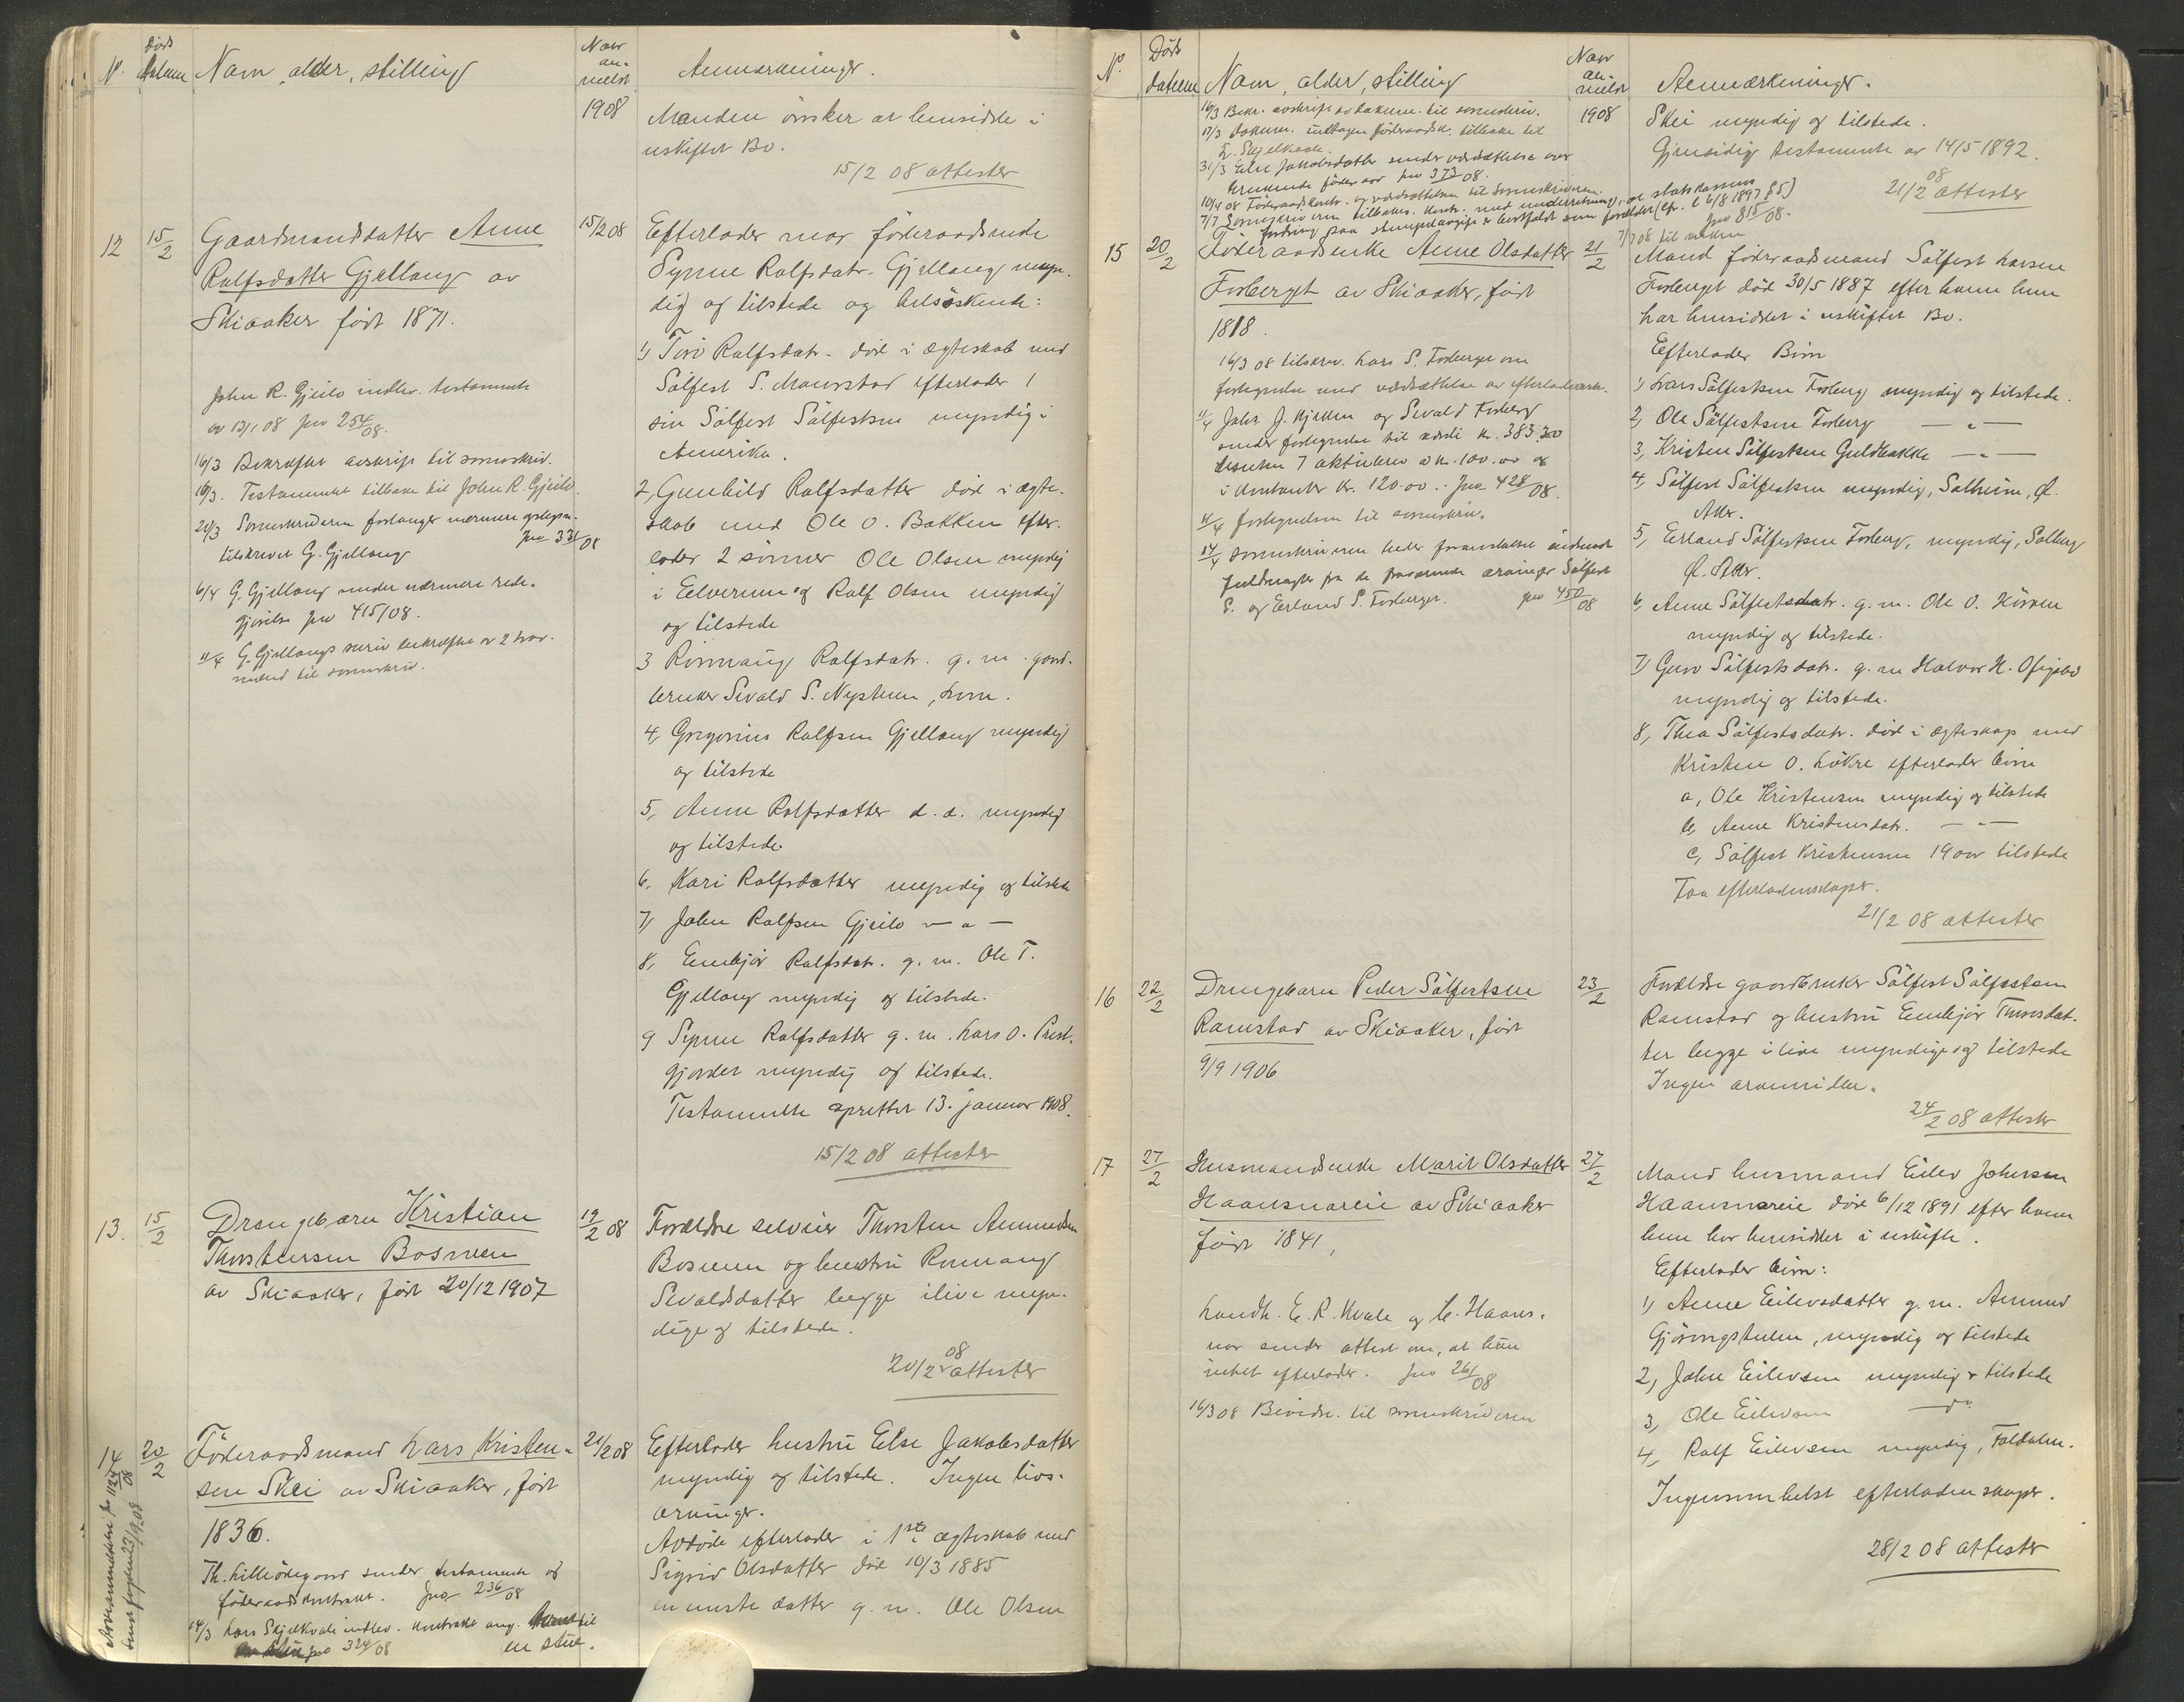 Nº
Døds
datum
Navn, alder, stilling
Naar
an-
meldt
Anmærkninger.
1908
Manden ønsker at hensidde i
uskiftet Bo.
15/2 08 attester
12
15/2
Gaardmandsdatter Anne
Rolfsdatter Gjellang av
Skiaaker født 1871.
John R. Gjeilo indlev. testamente
av 13/1 08 Jno 254/08.
16/3 Bekræftet avskrift til sorenskriv.
16/3. Testamentet tilbake til John R. Gjeilo.
20/3 Sorenskriveren forlanger nærmere oplysn.
tilskrevet G. Gjellang Jno 331/08
6/4 G. Gjellang sender nærmere rede-
gjørelse Jno 415/08.
11/4 G. Gjellangs skriv bekræftet av 2 lav-
mænd til sorenskriv.
15/2 08
Efterlader mor føderaadsenke
Synne Rolfsdatr. Gjellang myn-
dig og tilstede og helsøskende:
1) Toro Rolfsdatr. død i ægteskab med
Sølfest S. Maurstad efterlader 1
søn Sølfest Sølfestsen myndig i
Amerika.
2, Gunhild Rolfsdatter død i ægte-
skab med Ole O. Bakken efter-
lader 2 sønner Ole Olsen myndig
i Elverum og Rolf Olsen myndig
og tilstede
3 Rønnaug Rolfsdatr. g. m. gaard-
bruker Sivald S. Nystuen, Lom.
4, Gregorius Rolfsen Gjellang myndig
og tilstede
5, Anne Rolfsdatter d. æ. myndig
og tilstede
6, Kari Rolfsdatter myndig og tilstede
7) John Rolfsen Gjeilo — " —
8, Embjør Rolfsdatr. g. m. Ole T.
Gjellang myndig og tilstede.
9 Synne Rolfsdatter g. m. Lars O. Prest-
gjordet myndig og tilstede.
Testamente oprettet 13. januar 1908.
15/2 08 attester
13.
15/2
Drengebarn Kristian
Thorstensen Bosneen
av Skiaaker, født 20/12 1907
19/2 08
Forældre selveier Thorsten Amundsen
Bosneen og hustru Rønnaug
Sivaldsdatter begge ilive myn-
dige og tilstede.
20/2 08 attester
14
20/2
Føderaadsmand Lars Kristen-
sen Skei av Skiaaker, født
1836.
Th. Lilleødegaard sender testamente og
føderaadskontrakt. Jno 236/08
14/3 Lars Skjelkvale indlev. kontrakt ang.
Jno 324/08 en stue.
21/2 08
Efterlader hustru Else Jakobsdatter
myndig og tilstede. Ingen livs-
arvinger.
Avdøde efterlader i 1ste ægteskab med
Sigrid Olsdatter død 10/3 1885
eneste datter g. m. Ole Olsen
Nº
Døds
datum
Navn, alder, stilling
Naar
an-
meldt
Anmærkninger.
16/3 Bekr. avskrift av dokum. til sorenskriv.
17/3 dokum. undtagen føderaadsk. tilbake til
L. Skjelkvale.
31/3 Else Jakobsdatter sender værdsættelse over
brukende føderaad Jno 373/08.
10/4 08 Føderaadskontr. og værdsættelsen til sorenskriveren.
7/7 Sorenskriveren tilbakes. kontr. med underretning, at statskassens
fordring paa stempelavgift er bortfaldt som forældet (cfr. l. 6/8 1897 § 5)
Jno 815/08.
1908
Skei myndig og tilstede.
Gjensidig testamente av 14/5 1892.
21/2 08 attester
15
20/2
Føderaadsenke Anne Olsdatter
Forberget av Skiaaker, født
1818.
16/3 08 tilskrev. Lars S. Forberget om
fortegnelse med værdsættelse av efterladensk.
11/4 John J. Hjelden og Sivald Forberg
sender fortegnelse til værdi kr. 383.300
desuten 7 aktiebrev a kr. 100.00 og
i kontanter kr. 120.00. Jno 428/08.
11/4 fortegnelsen til sorenskriv.
14/4 sorenskriveren beder foranstaltet indsendt
fuldmagter fra de fraværende arvinger Sølfest
S. og Erland S. Forberget. Jno 450/08
21/2
Mand føderaadsmand Sølfest Larsen
Forberget død 30/5 1887 efter hvem hun
har hensiddet i uskiftet Bo.
Efterlader Børn
1) Lars Sølfestsen Forberg myndig og tilstede.
2, Ole Sølfestsen Forberg — " —
3, Kristen Sølfestsen Guldbakke — " —
4, Sølfest Sølfestsen myndig, Solheim, Ø.
Aker.
5, Erland Sølfestsen Forberg, myndig, Solberg
Ø. Aker.
6, Anne Sølfestsdatr. g. m. Ole O. Hørven
myndig og tilstede.
7) Guro Sølfestsdatr. g. m. Halvor H. Ofigsbø
myndig og tilstede.
8, Thea Sølfestsdatr. død i ægteskap med
Kristen O. Løkre efterlader børn
a, Ole Kristensen myndig og tilstede
b, Anne Kristensdatr. — " —
c, Sølfest Kristensen 19 aar tilstede
Faa efterladenskaper.
21/2 08 attester
16
22/2
Drengebarn Peder Sølfestsen
Ramstad av Skiaaker, født
9/9 1906
23/2
Forældre gaardbruker Sølfest Sølfestsen
Ramstad og hustru Embjør Thorsdat-
ter begge ilive myndige og tilstede
Ingen arvemidler.
24/2 08 attester
17
27/2
Husmandsenke Marit Olsdatter
Haansnareie av Skiaaker
født 1841,
Landh. E. R. Kvale og E. Haans-
nar sender attest om, at hun
intet efterlader. Jno 261/08
16/3 08 Bevidn. til sorenskriveren
27/2
Mand husmand Eilev Johnsen
Haansnareie død 6/12 1891 efter hvem
hun har hensiddet i uskifte.
Efterlader børn:
1) Anne Eilevsdatter g. m. Amund
Gjøringstulen, myndig og tilstede
2, John Eilevsen myndig & tilstede
3, Ole Eilevsen — do
4, Rolf Eilevsen myndig, Foldalen.
Ingensomhelst efterladenskaper.
28/2 08 attester